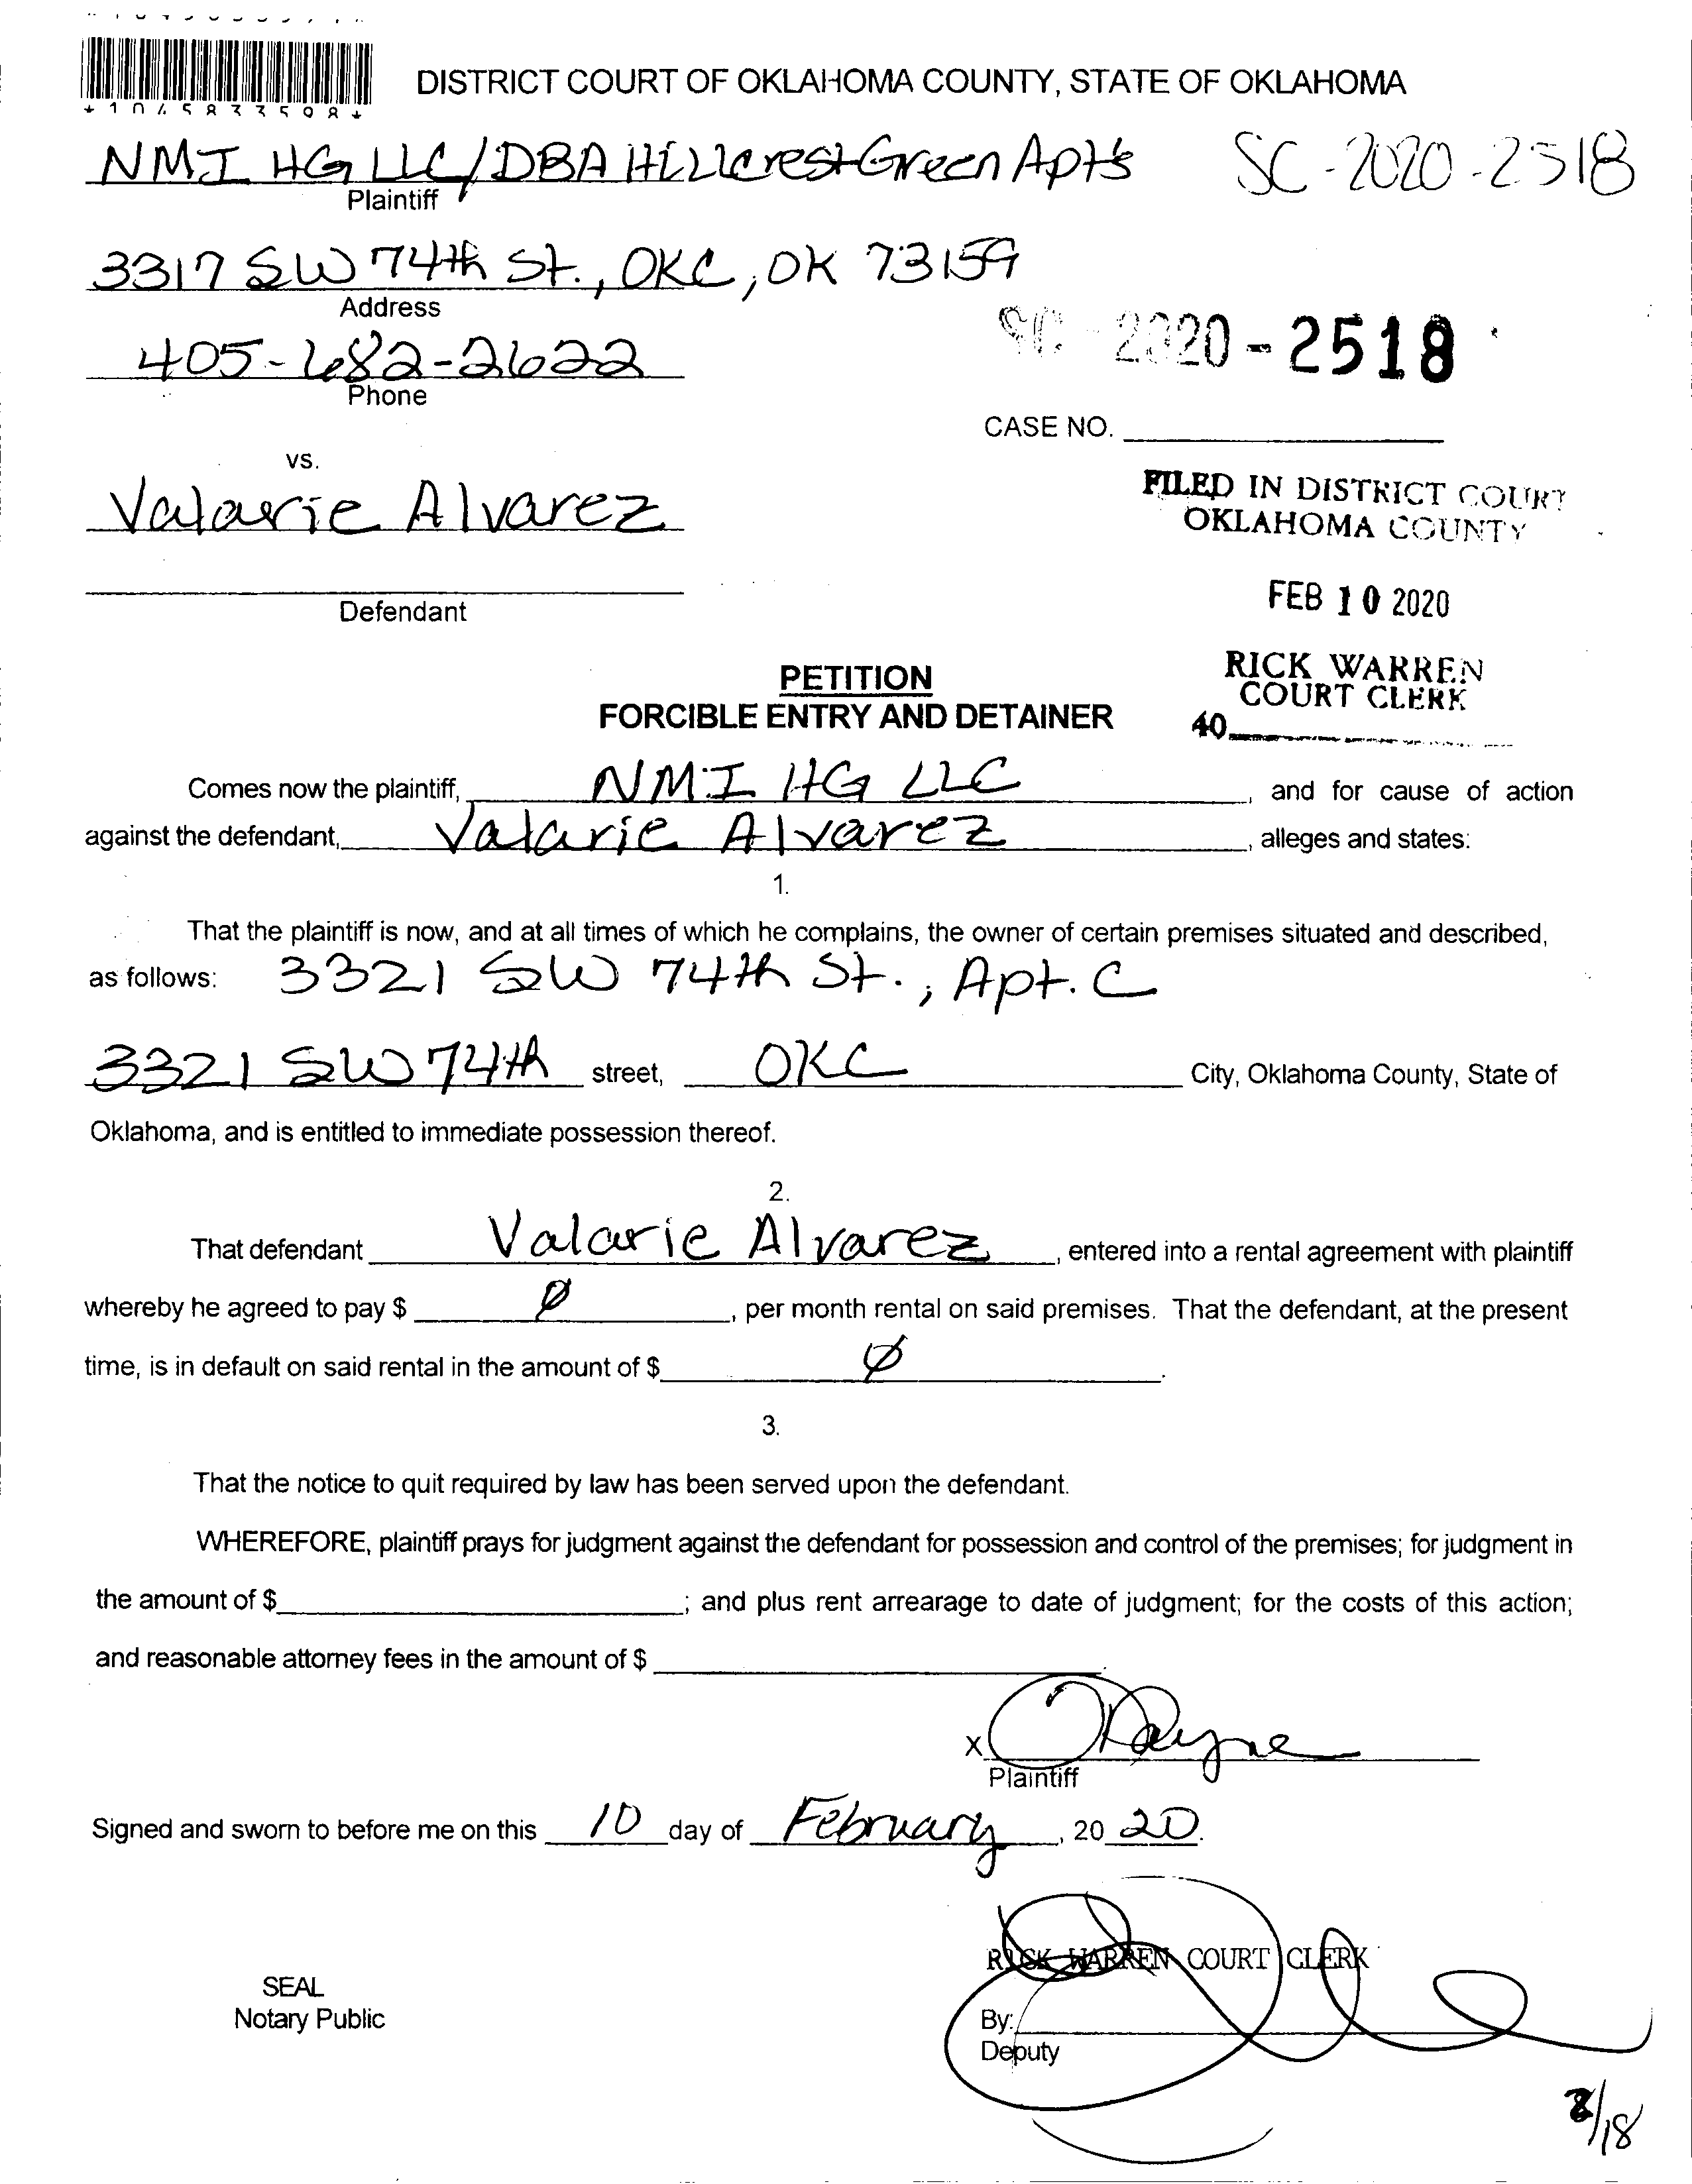 *1045833598*
DISTRICT COURT OF OKLAHOMA COUNTY, STATE OF OKLAHOMA
NMI HG LLC/DBA Hillcrest Green Apt's SC-2020-2518
Plaintiff
3317 SW 74th St., OKC, OK 73159
Address
SC-2020-2518
405-682-2622
Phone
CASE NO.
vs.
Valarie Alvarez
FILED IN DISTRICT COURT
OKLAHOMA COUNTY
Defendant
FEB 10 2020
PETITION
FORCIBLE ENTRY AND DETAINER
RICK WARREN
COURT CLERK
40
Comes now the plaintiff, NMI HG LLC, and for cause of action
against the defendant, Valarie Alvarez, alleges and states:
1.
That the plaintiff is now, and at all times of which he complains, the owner of certain premises situated and described,
as follows: 3321 SW 74th St., Apt. C
3321 SW 74th street, OKC City, Oklahoma County, State of
Oklahoma, and is entitled to immediate possession thereof.
2.
That defendant Valarie Alvarez, entered into a rental agreement with plaintiff
whereby he agreed to pay $ Ø, per month rental on said premises. That the defendant, at the present
time, is in default on said rental in the amount of $ Ø.
3.
That the notice to quit required by law has been served upon the defendant.
WHEREFORE, plaintiff prays for judgment against the defendant for possession and control of the premises; for judgment in
the amount of $; and plus rent arrearage to date of judgment; for the costs of this action;
and reasonable attorney fees in the amount of $.
X
Plaintiff
Signed and sworn to before me on this 10 day of February, 2020.
RICK WARREN COURT CLERK
SEAL
Notary Public
By:
Deputy
2/18